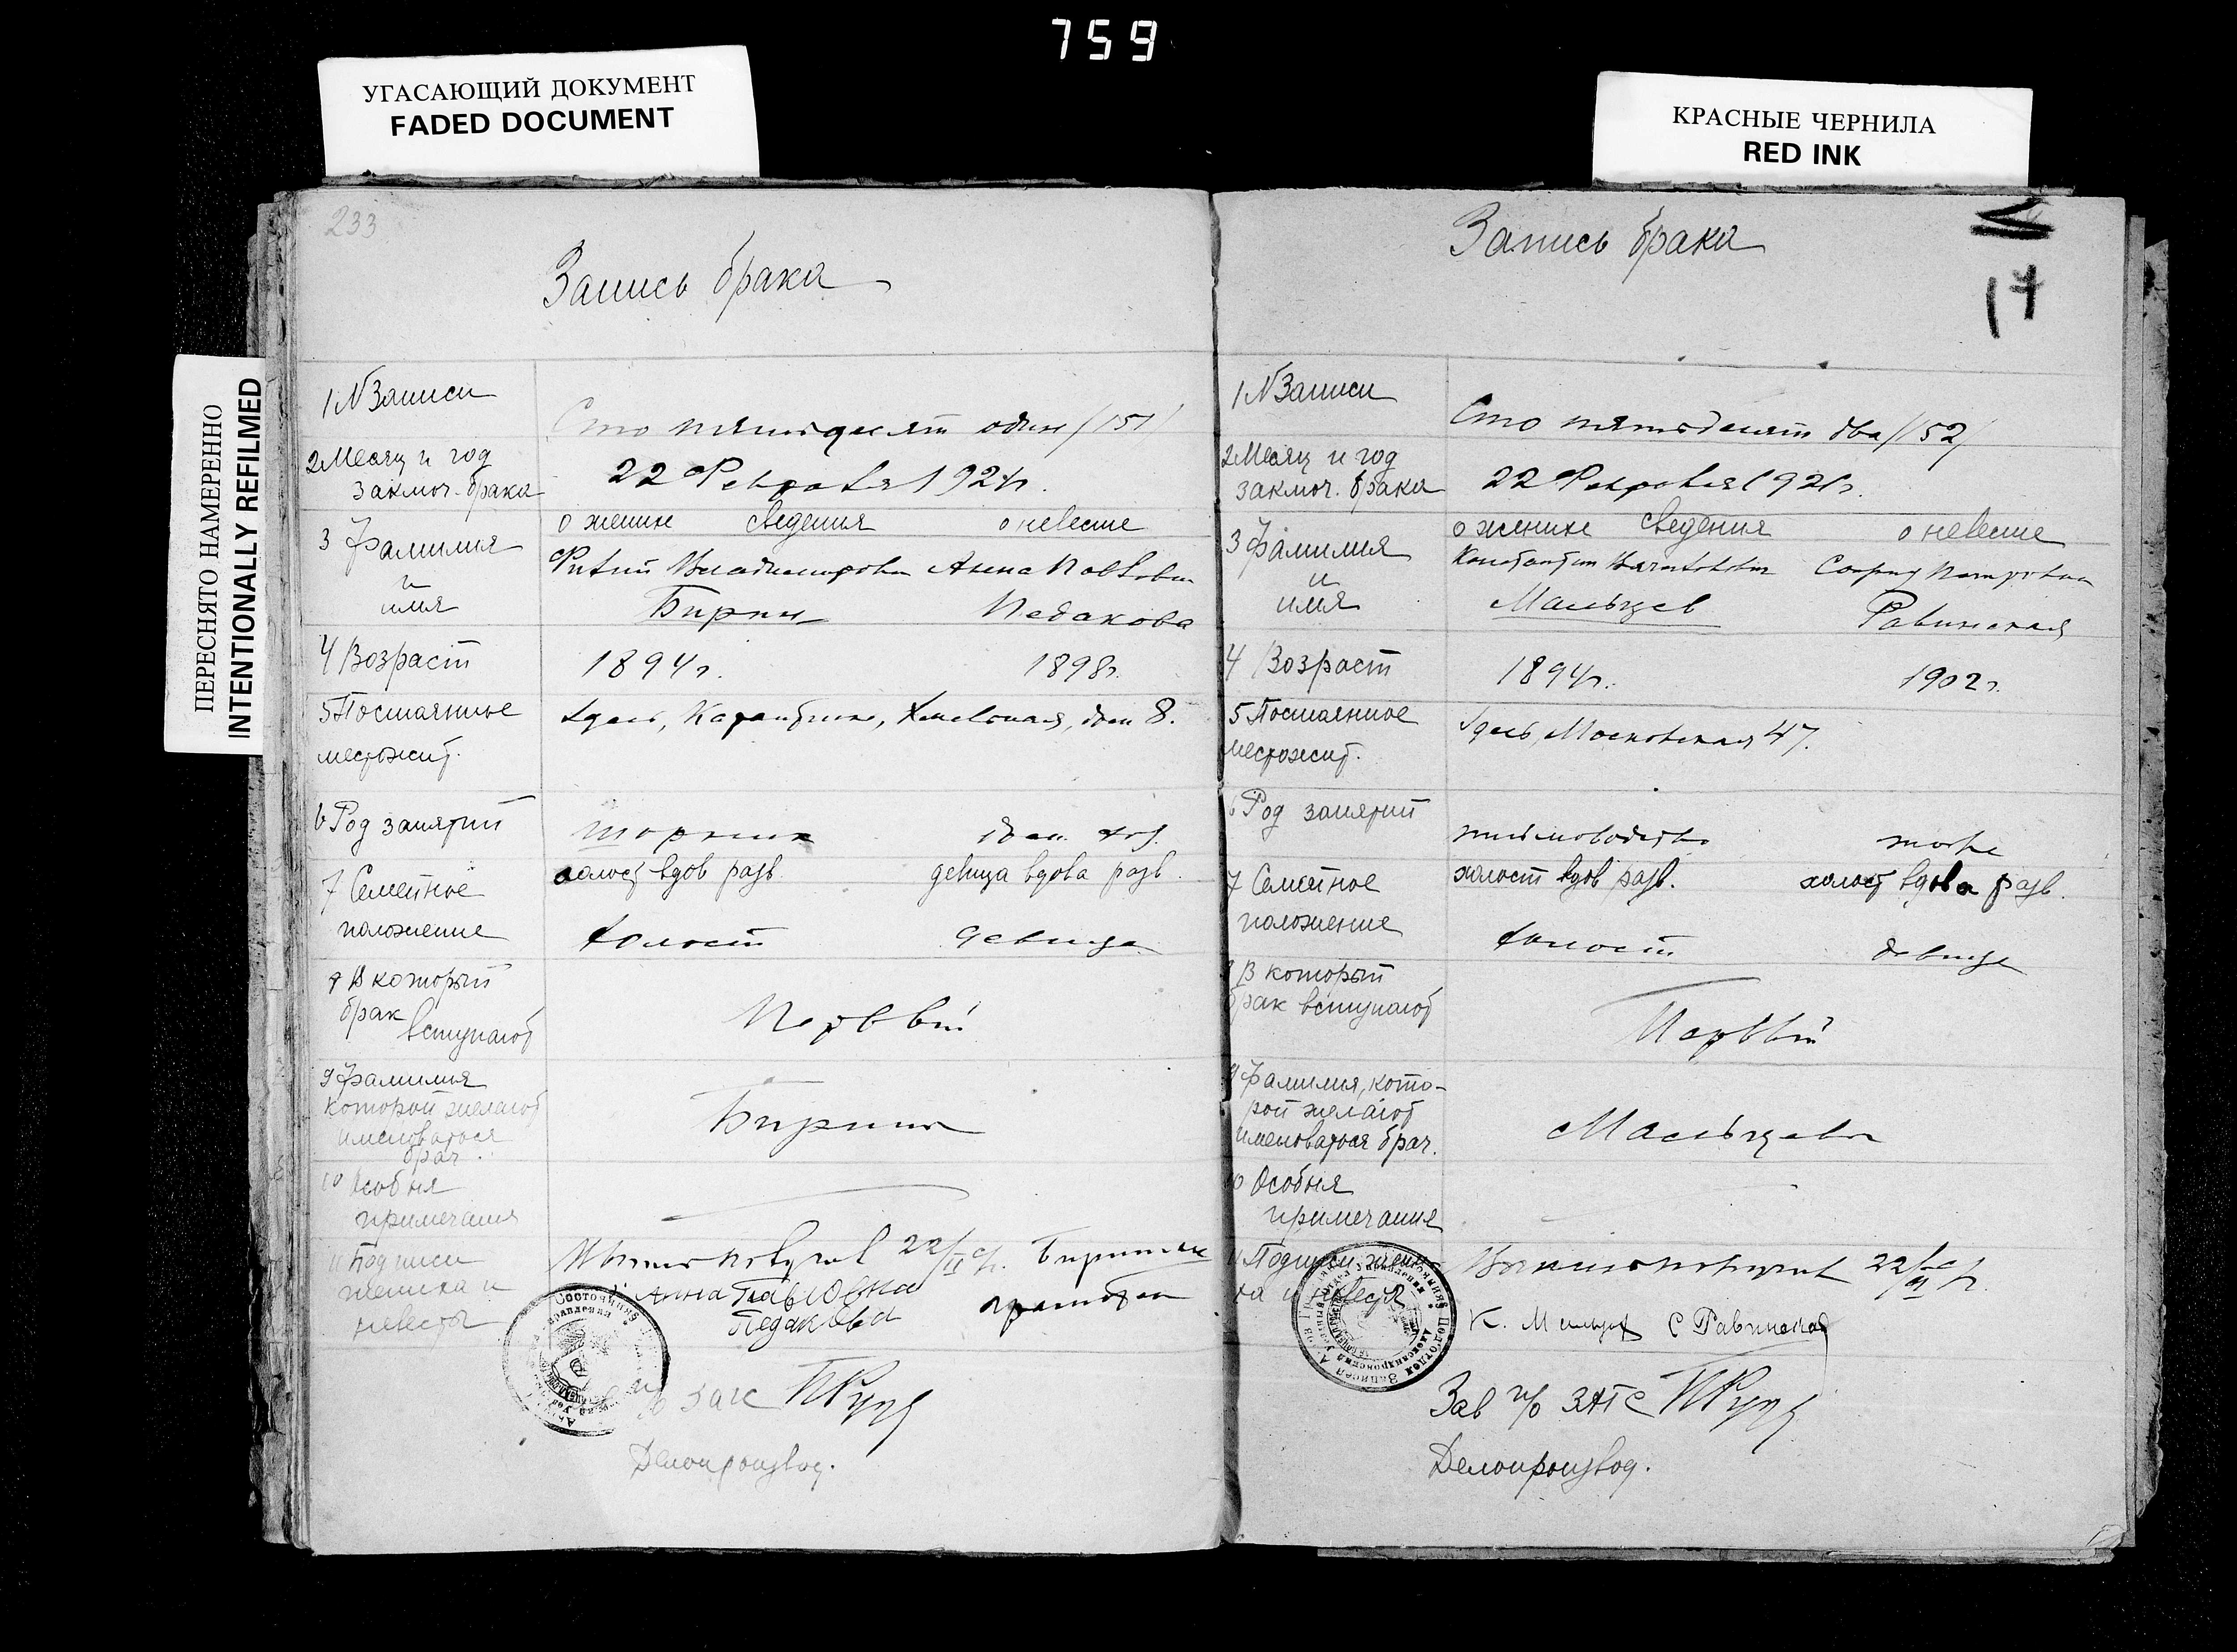 759
УГАСАЮЩИЙ ДОКУМЕНТ
FADED DOCUMENT
КРАСНЫЕ ЧЕРНИЛА
RED INK
ПЕРЕСНЯТО НАМЕРЕННО
INTENTIONALLY REFILMED
233
Запись брака
1 N Записи
Сто пятьдесят один /151/
2 Месяц и год
заключ. брака
22 Февраля 192
о женихе сведения о невесте
3 Фамилия
и
имя
Владимирович Анна Павловна
Бирин Педакова
4 Возраст
1894 г. 1898 г.
5 Постоянное
местожит.
Здесь, дом 8.
6 Род занятий
шорник дом. хоз.
холост вдов разв. девица вдова разв.
7 Семейное
положение
холост девица
8 В который
брак
вступают
Первый
9 Фамилия
которой желают
именоваться
брач.
Бирины
10 Особыя
примечания
11 Подписи
жениха и
невесты
22/II
Анна Павловна
Педакова
п/о загс
Делопроизвод.
17
Запись брака
1 N Записи
Сто пятьдесят два /152/
2 Месяц и год
заключ. брака
22 Февраля 192
о женихе сведения о невесте
3 Фамилия
и
имя
Константин Петровна
Мальцев Равинская
4 Возраст
1894 г. 1902 г.
5 Постоянное
местожит.
Здесь, Московская 47.
6 Род занятий
письмоводство тоже
холост вдов разв. холост вдова разв.
7 Семейное
положение
холост девица
8 В который
брак вступают
Первый
9 Фамилия, кото-
рой желают
именоваться брач.
Мальцевы
10 Особыя
примечание
11 Подписи жени-
ха и невеста
22/II
К. Мальцев С Равинская
Зав п/о ЗАГС
Делопроизвод.